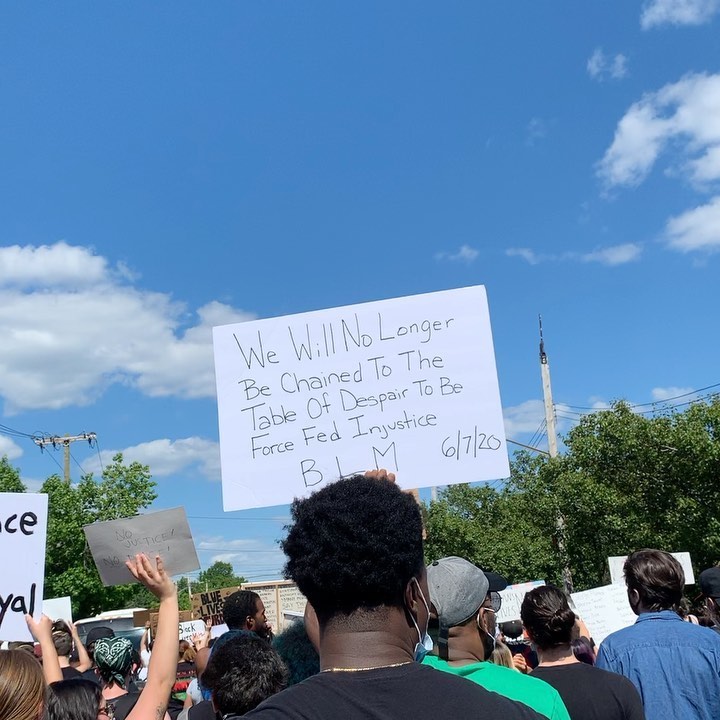 We Will No Longer
Be Chained To The
Table Of Despair To Be
Force Fed Injustice
BLM 6/7/20
NO
JUSTICE!
NO
BLUE
LIVES